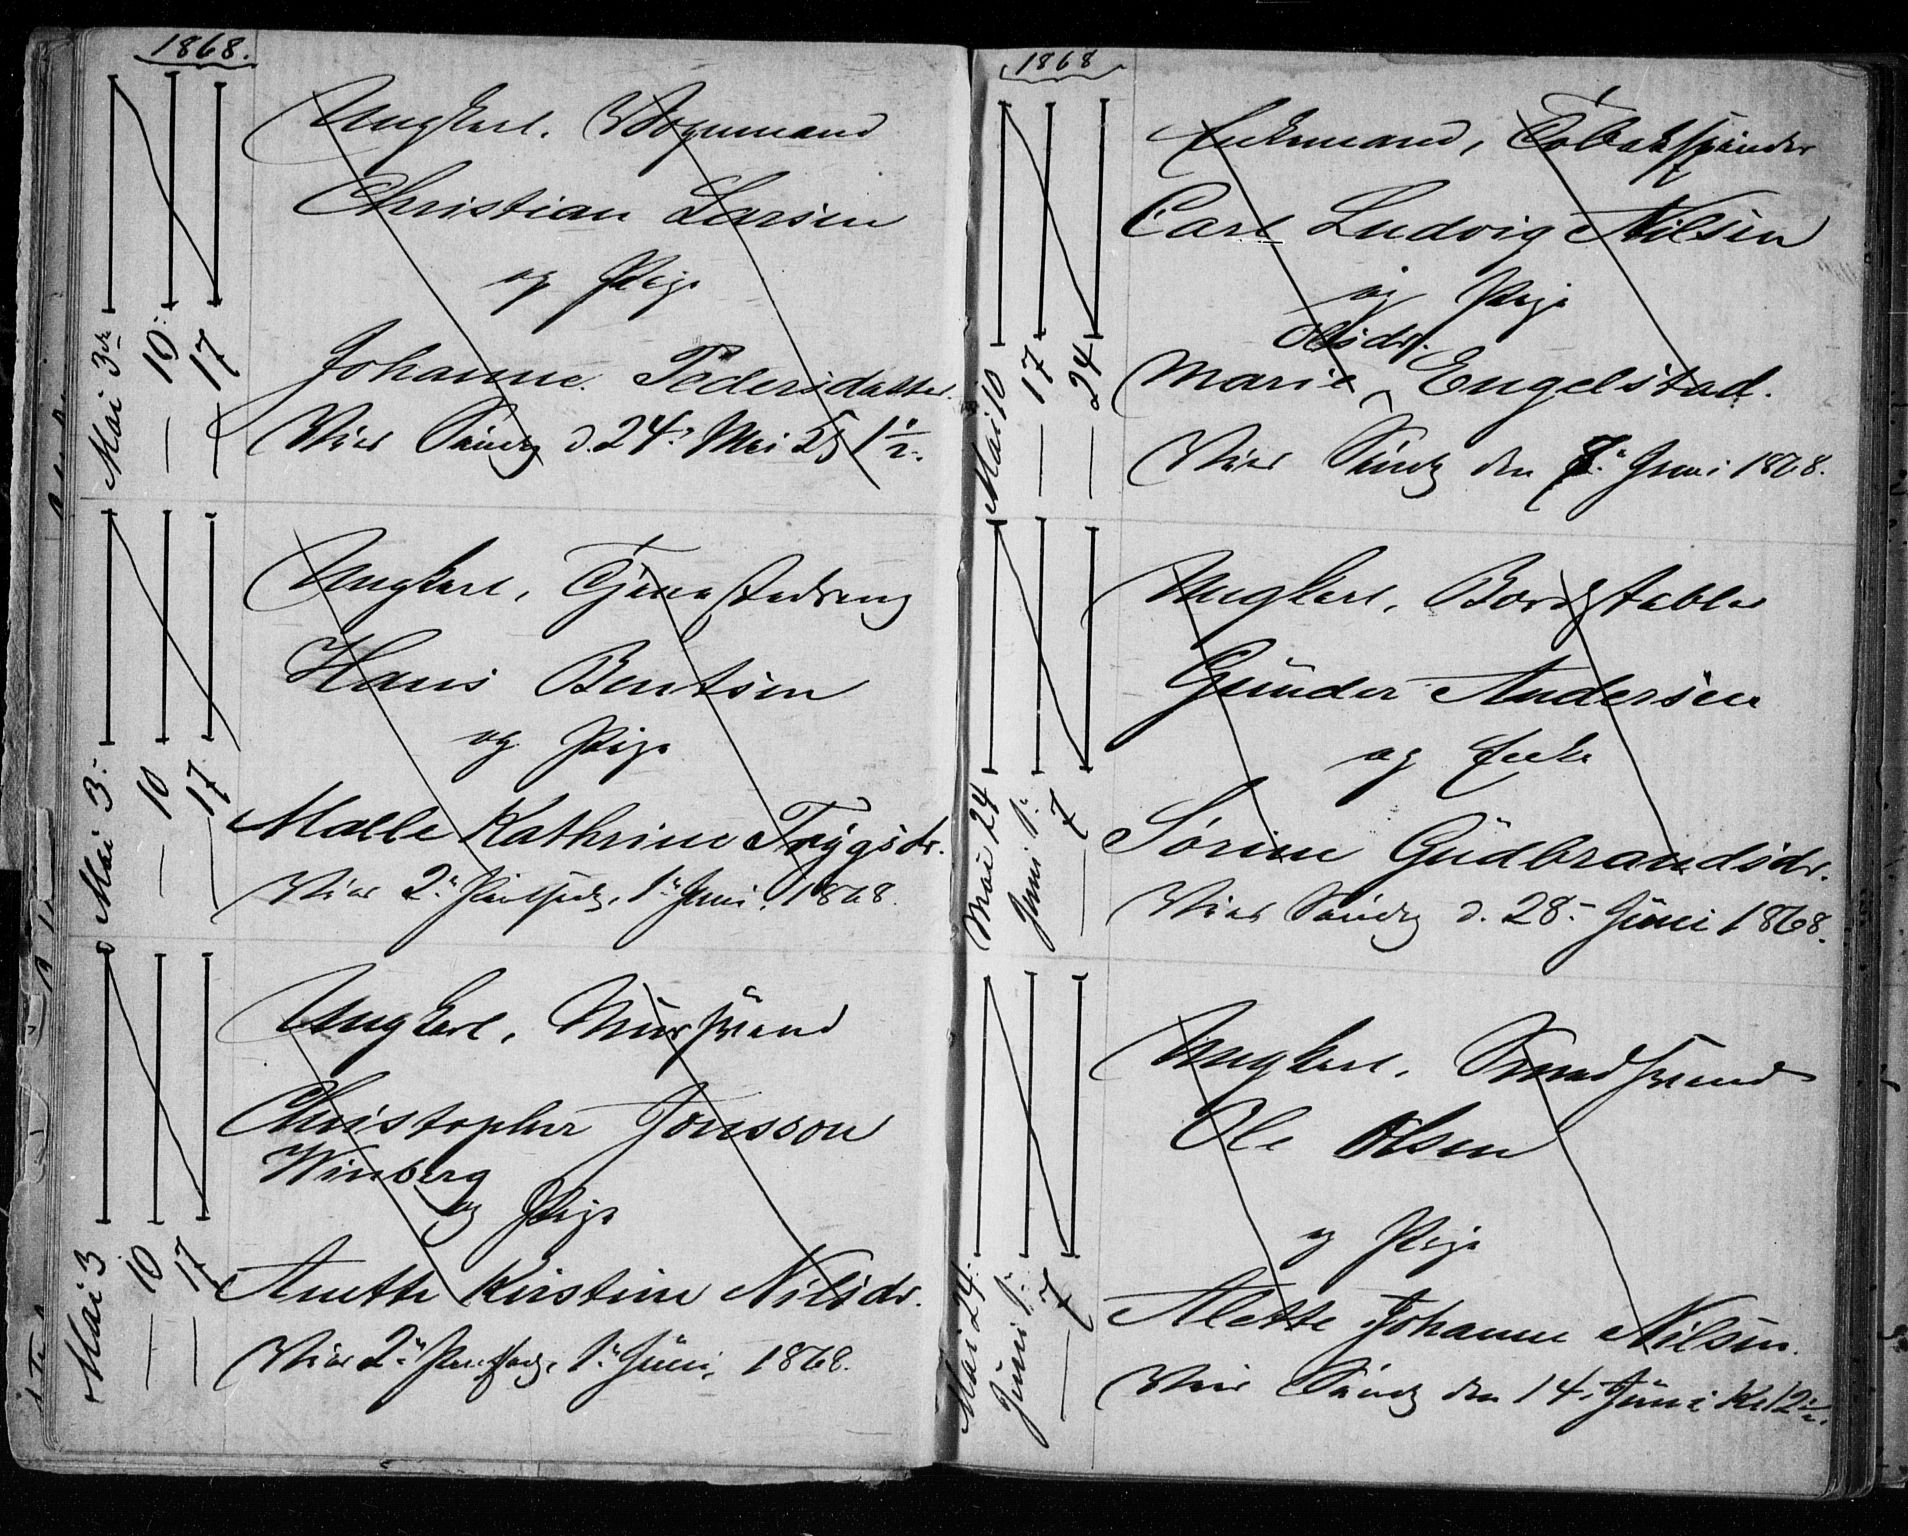 1868.
Mai 3die
— 10
— 17
Ungkarl. Vognmand
Christian Larsen
og Pige
Johanne Pedersdatter.
Vies Søndag d. 24. Mai 1½.
Mai 3.
— 10
— 17
Ungkarl, Tjenestedreng
Hans Bentsen
og Pige
Malle Kathrine Trygsdr.
Vies 2. Pintsedag, 1. Juni, 1868.
Mai 3
— 10
— 17
Ungkarl, Mursvend
Christopher Jonsson
Winberg
og Pige
Anette Kirstine Nilsdr.
Vies 2. Pintsedag, 1. Juni, 1868.
1868
Mai 10
— 17
— 24
Enkemand, Tobakspinder
Carl Ludvig Nilsen
og Pige
Olsdr.
Marie Engelstad.
Vies Søndag den 7. Juni 1868.
Mai 24
Juni 1.
— 7
Ungkarl, Bordstabler
Günder Andersen
og Enke
Sørine Gudbrandsdr.
Vies Søndag d. 28. Juni 1868.
Mai 24.
Juni 1.
— 7
Ungkarl, Smedsvend
Ole Olsen
og Pige
Alette Johanne Nilsen.
Vies Søndag den 14. Juni Kl 12½.